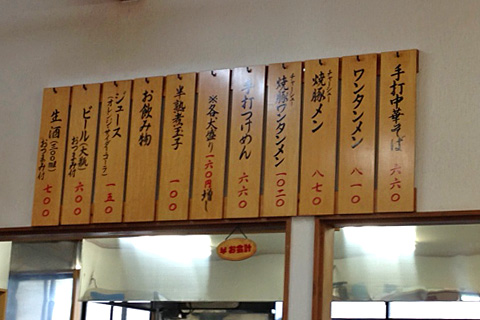 手打中華そば 六六〇
ワンタンメン 八一〇
焼豚メン 八七〇
チャーシュー
焼豚ワンタンメン 一〇二〇
チャーシュー
手打つけめん 六六〇
※各大盛り一六〇円増し
半熟煮玉子 一〇〇
お飲み物
ジュース 一五〇
(オレンジ・サイダー・コーラ)
ビール(大瓶) 六〇〇
おつまみ付
生酒(三〇〇ml) 七〇〇
おつまみ付
お会計